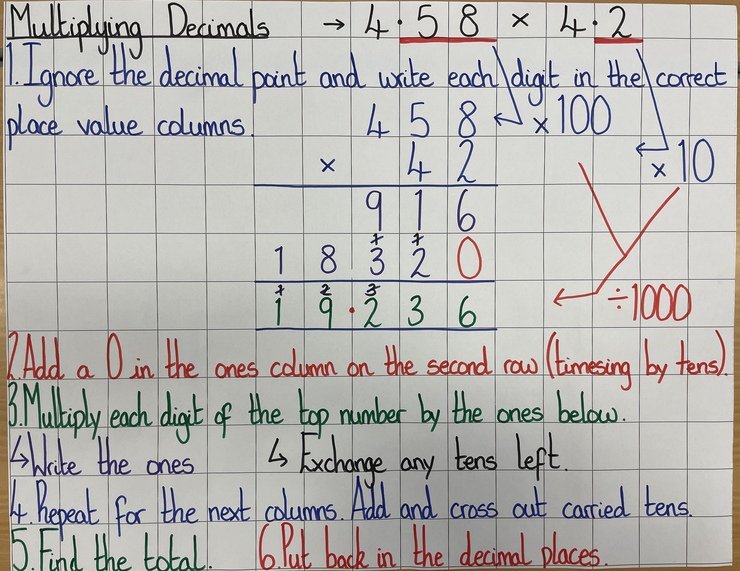 Multiplying Decimals → 4.58 × 4.2
1. Ignore the decimal point and write each digit in the correct
place value columns.
4 5 8 ×100
× 4 2 ×10
9 1 6
1 8 3 2 0
1 9.2 3 6 ÷1000
2. Add a 0 in the ones column on the second row (timesing by tens).
3. Multiply each digit of the top number by the ones below.
↳ Write the ones ↳ Exchange any tens left.
4. Repeat for the next columns. Add and cross out carried tens.
5. Find the total. 6. Put back in the decimal places.